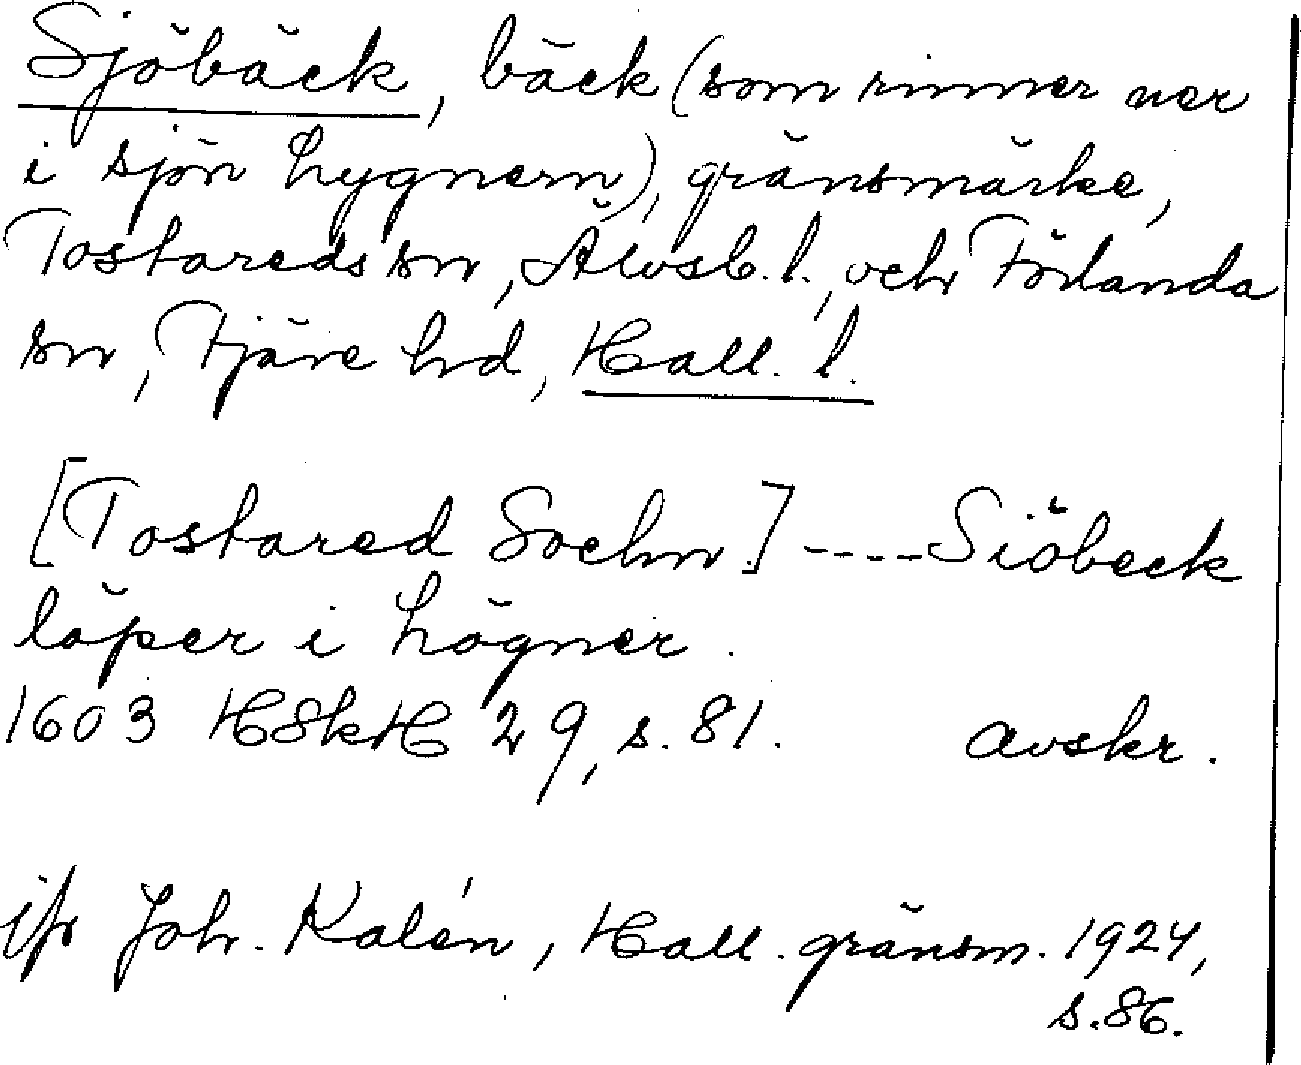 Sjöbäck, bäck (som rinner ner
i sjön Lygnern), gränsmärke,
Tostareds sn, Älvsb. l., och Förlanda
sn, Fjäre hd, Hall. l.
[Tostared Sochn.] ---- Siöbeck
löper i Lögner.
1603 HSkH 29, s. 81. avskr.
jfr Joh. Kalén, Hall. gränsm. 1924,
s. 86.